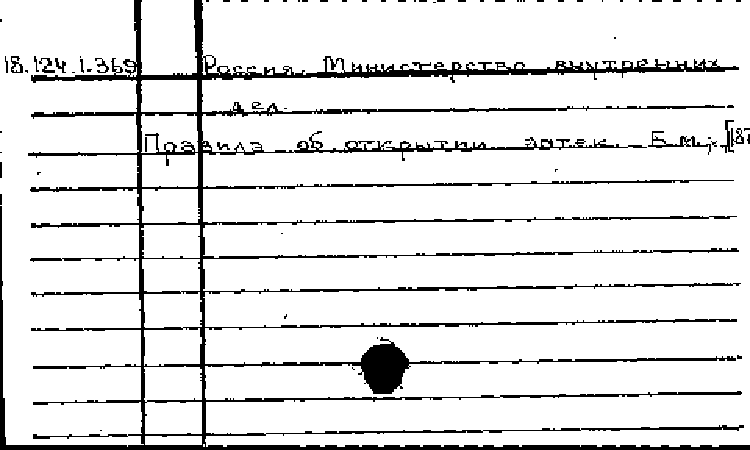 18.124.1.369 Россия. Министерство внутренних
дел.
Правила об открытии аптек. Б.м.,